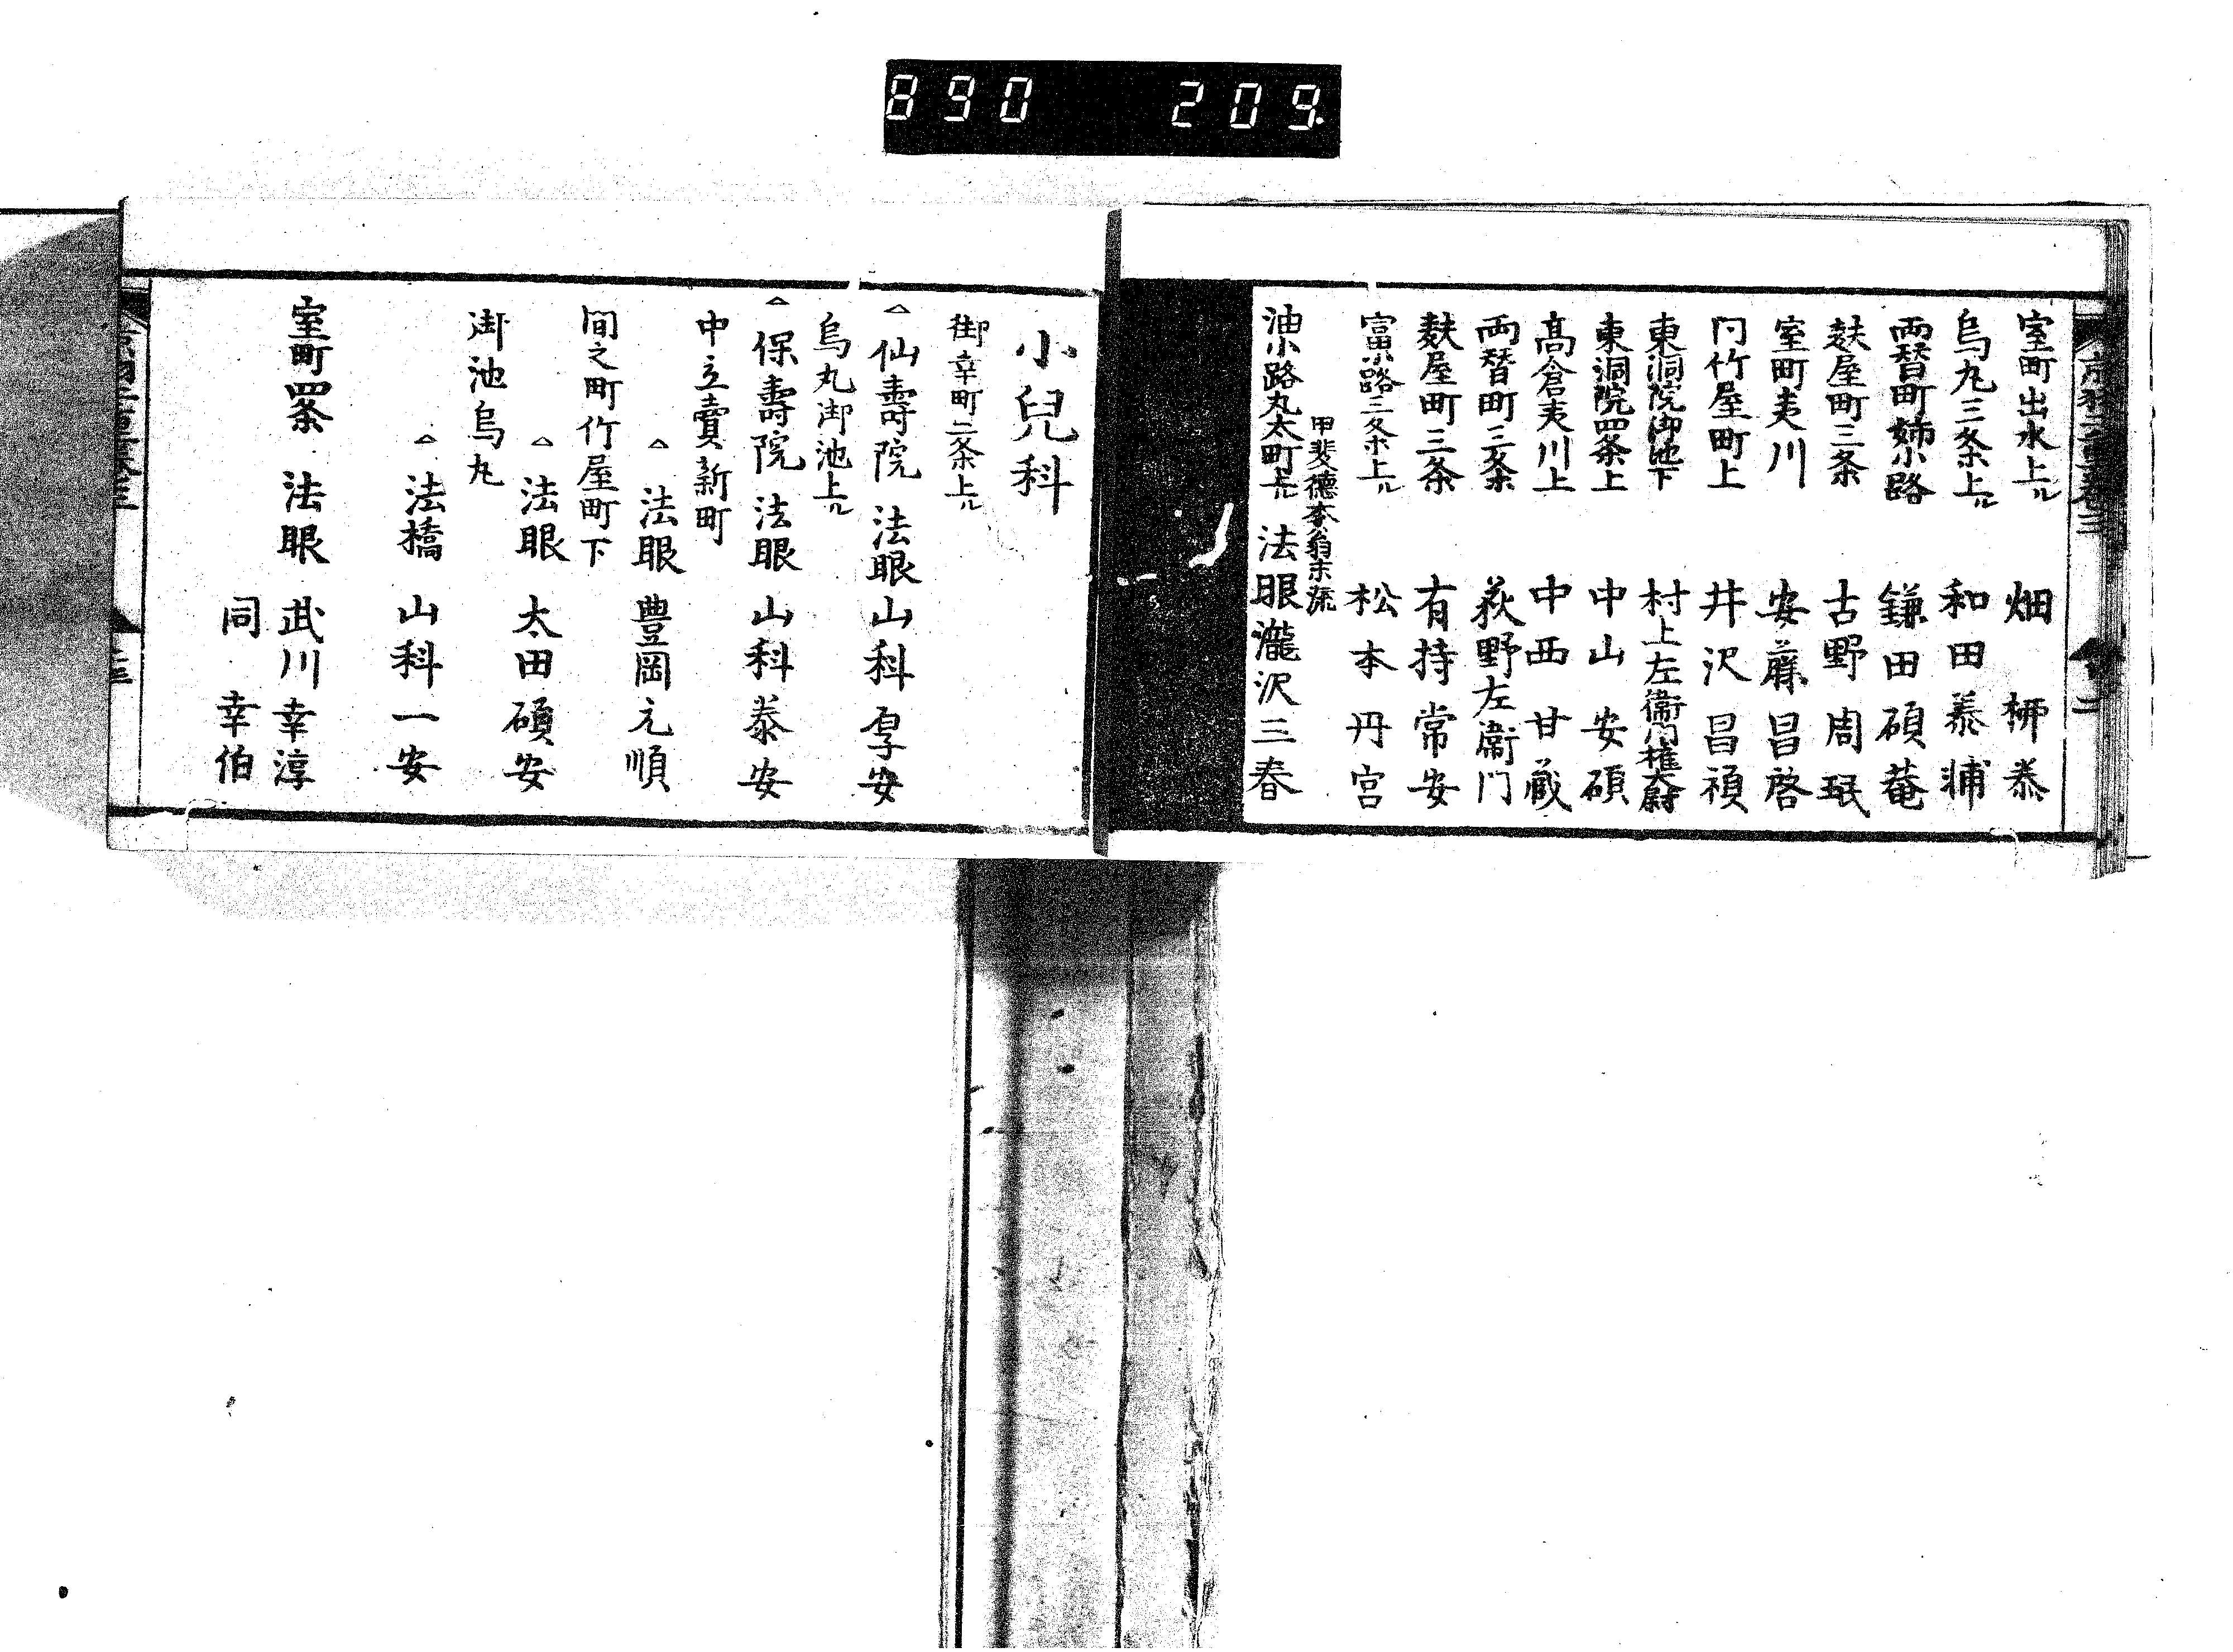 890 209
室町出水上ル 畑 柳泰
烏丸三条上ル 和田泰輔
両替町姉小路 鎌田碩菴
麸屋町三条 古野周珉
室町夷川 安藤昌啓
門竹屋町上 井沢昌禎
東洞院御池下 村上左衛門権大尉
東洞院四条上 中山安碩
高倉夷川上 中西甘蔵
両替町三条 荻野左衛門
麸屋町三条 有持常安
富小路三条上ル 松本丹宮
甲斐徳本翁末流
油小路丸太町上ル 法眼瀧沢三春
小兒科
御幸町二条上ル
△仙壽院 法眼山科厚安
烏丸御池上ル
△保壽院 法眼山科泰安
中立賣新町
△法眼 豊岡元順
間之町竹屋町下
△法眼 太田碩安
御池烏丸
△法橋 山科一安
室町四条 法眼 武川幸淳
同 幸伯